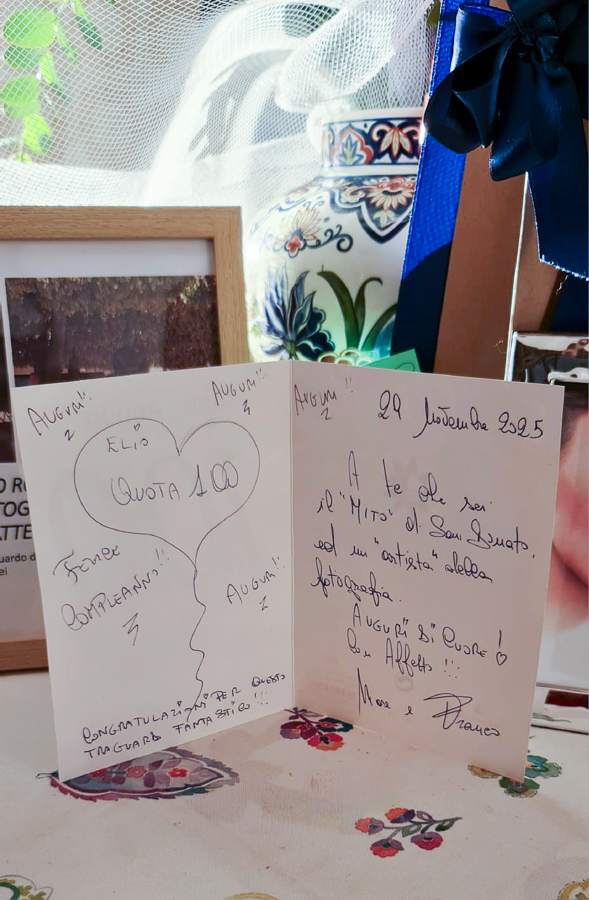 AUGURI!!
AUGURI!!
ELIO
QUOTA 100
FELICE
COMPLEANNO!!
AUGURI!!
CONGRATULAZIONI PER QUESTO
TRAGUARDO FANTASTICO!!!
AUGURI!!
29 Novembre 2025
A te che sei
il "MITO" di San Donato,
ed un "artista" della
fotografia.
AUGURI DI CUORE!
Con Affetto!!!
e Franco